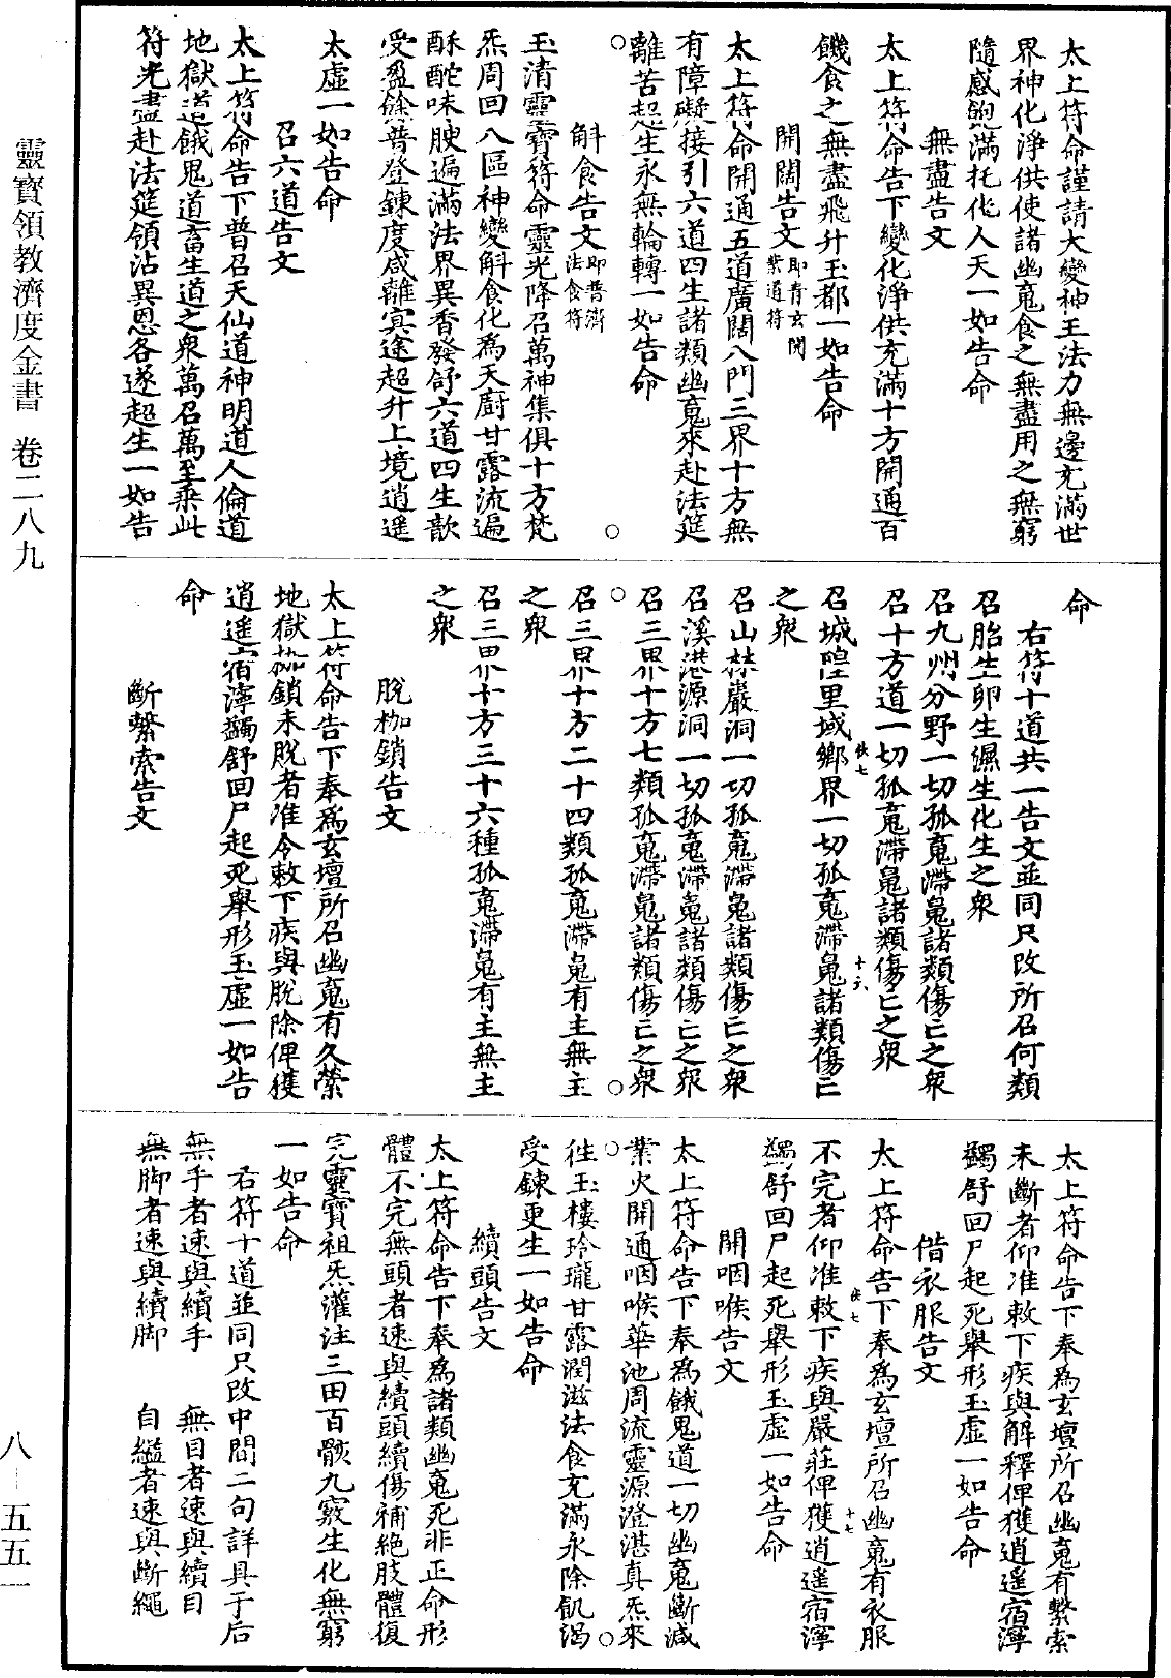 太上符命謹請大變神王法力無邊充滿世
界神化淨供使諸幽䰟食之無盡用之無窮
隨感飽滿托化人天一如告命
無盡告文
太上符命告下變化淨供充滿十方開通百
饑食之無盡飛升玉都一如告命
開闊告文即青玄開業通符
太上符命開通五道廣闊八門三界十方無
有障礙接引六道四生諸類幽䰟來赴法筵
離苦起生永無輪轉一如告命
斛食告文即普濟法食符
玉清靈寶符命靈光降召萬神集俱十方梵
炁周回八區神變斛食化為天廚甘露流遍
酥酡味腴遍滿法界異香發舒六道四生歆
受盈餘普登鍊度咸離寘途超升上境逍遥
太虛一如告命
召六道告文
太上符命告下普召天仙道神明道人倫道
地獄道餓鬼道畜生道之衆萬召萬至乘此
符光盡赴法筵領沾異恩各遂超生一如告
命
右符十道共一告文並同只改所召何類
召胎生卵生濕生化生之衆
召九州分野一切孤䰟滯鬼諸類傷亡之衆
召十方道一切孤䰟滯鬼諸類傷亡之衆
召城隍里域鄉界一切孤䰟滯鬼諸類傷亡
之衆
召山林巖洞一切孤䰟滯鬼諸類傷亡之衆
召溪港源洞一切孤䰟滯鬼諸類傷亡之衆
召三界十方七類孤䰟滯鬼諸類傷亡之衆
召三界十方二十四類孤䰟滯鬼有主無主
之衆
召三界十方三十六種孤䰟滯鬼有主無主
之衆
脫枷鎖告文
太上符命告下奉為玄壇所召幽䰟有久縈
地獄枷鎖未脫者准今敕下疾與脫除俾獲
逍遥宿濘蠲舒回尸起死舉形玉虛一如告
命
斷繫索告文
太上符命告下奉為玄壇所召幽䰟有繫索
未斷者仰准敕下疾與解釋俾獲逍遥宿濘
蠲舒回尸起死舉形玉虛一如告命
偕衣服告文
太上符命告下奉為玄壇所召幽䰟有衣服
不完者仰准敕下疾與嚴莊俾獲逍遥宿濘
蠲舒回尸起死舉形玉虛一如告命
開咽喉告文
太上符命告下奉為餓鬼道一切幽䰟斷滅
業火開通咽喉華池周流靈源澄湛真炁來
往玉樓玲瓏甘露潤滋法食充滿永除飢渴
受鍊更生一如告命
續頭告文
太上符命告下奉為諸類幽䰟死非正命形
體不完無頭者速與續頭續傷補絶肢體復
完靈寶祖炁灌注三田百骸九竅生化無窮
一如告命
右符十道並同只改中間二句詳具于后
無手者速與續手　無目者速與續目
無脚者速與續脚　自縊者速與斷繩
靈寶領教濟度金書　卷二八九
八－五五一
俠七
十六
俠七
十七